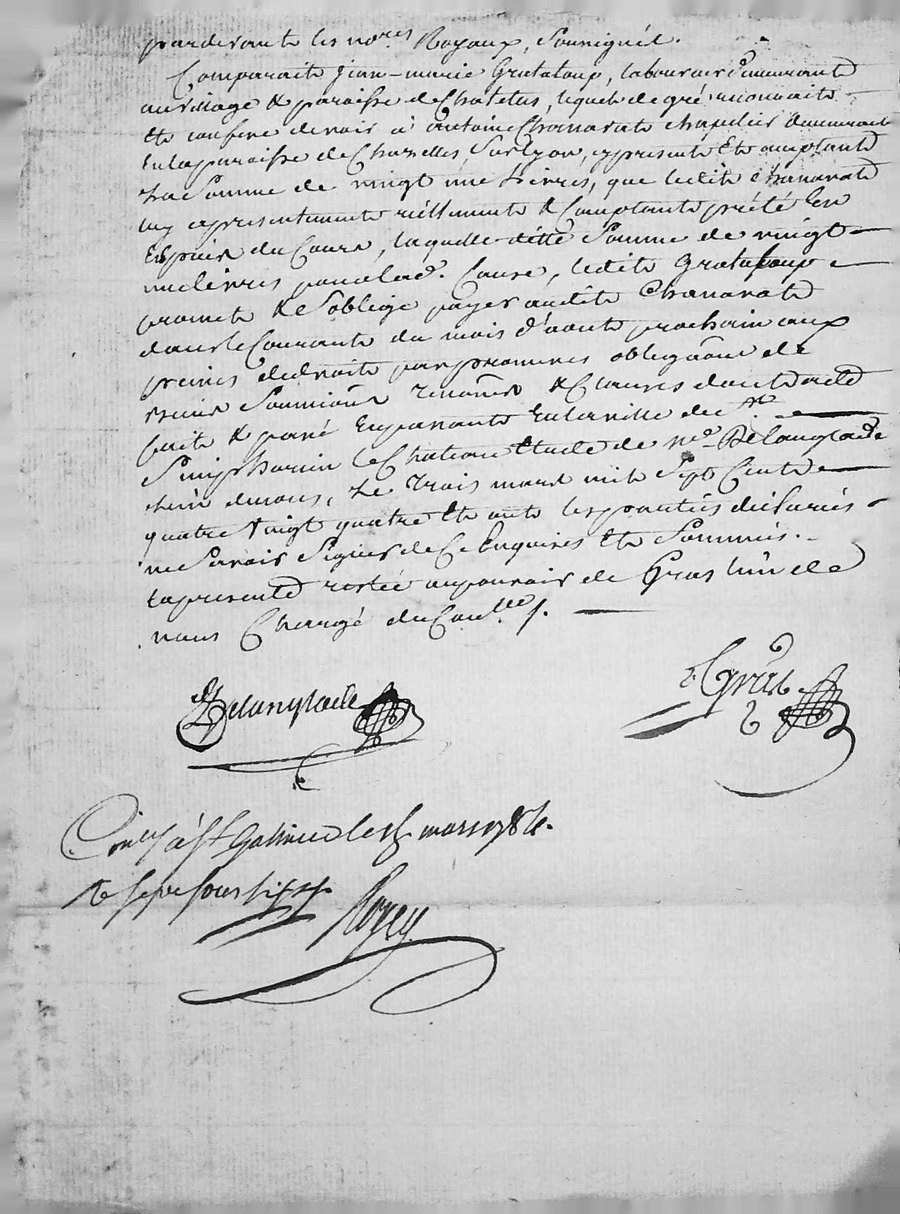 pardevant les no.res Royaux, Sousignés.
Comparait jean-marie Grataloup, laboureur demeurant
au village & paroisse de Chatelus, lequel de gré reconnait
et confesse devoir à antoine Chanavat chapelier demeurant
En la paroisse de Chazelles, Sur lyon, cy present et acceptant
La Somme de vingt une Livres, que ledit Chanavat
luy a presentement réellement & Comptant prété En
Espèces du Cours, laquelle ditte Somme de vingt
une livres pour lad. Cause, ledit Grataloup
promet & S'oblige payer audit Chanavat
dans le Courant du mois d'aout prochain aux
peines de droit par promesses obligaôns de
biens Soumiôns renoôns & Clauses dont acte
fait & passé En parant En la ville de St.
Simphorien le Chateau Etude de me. Delanglade
l'un de nous, Le trois mars mil Sept Cent
quatre vingt quatre et ont les parties déclarés
ne Savoir Signer de Ce Enquises et Sommés.
la presente restée au pouvoir de Gras l'un de
nous Chargé du Con.lle /.
Delanglade
Gras
Con.lé à St Galmier le 15 mars 1784.
Rozey